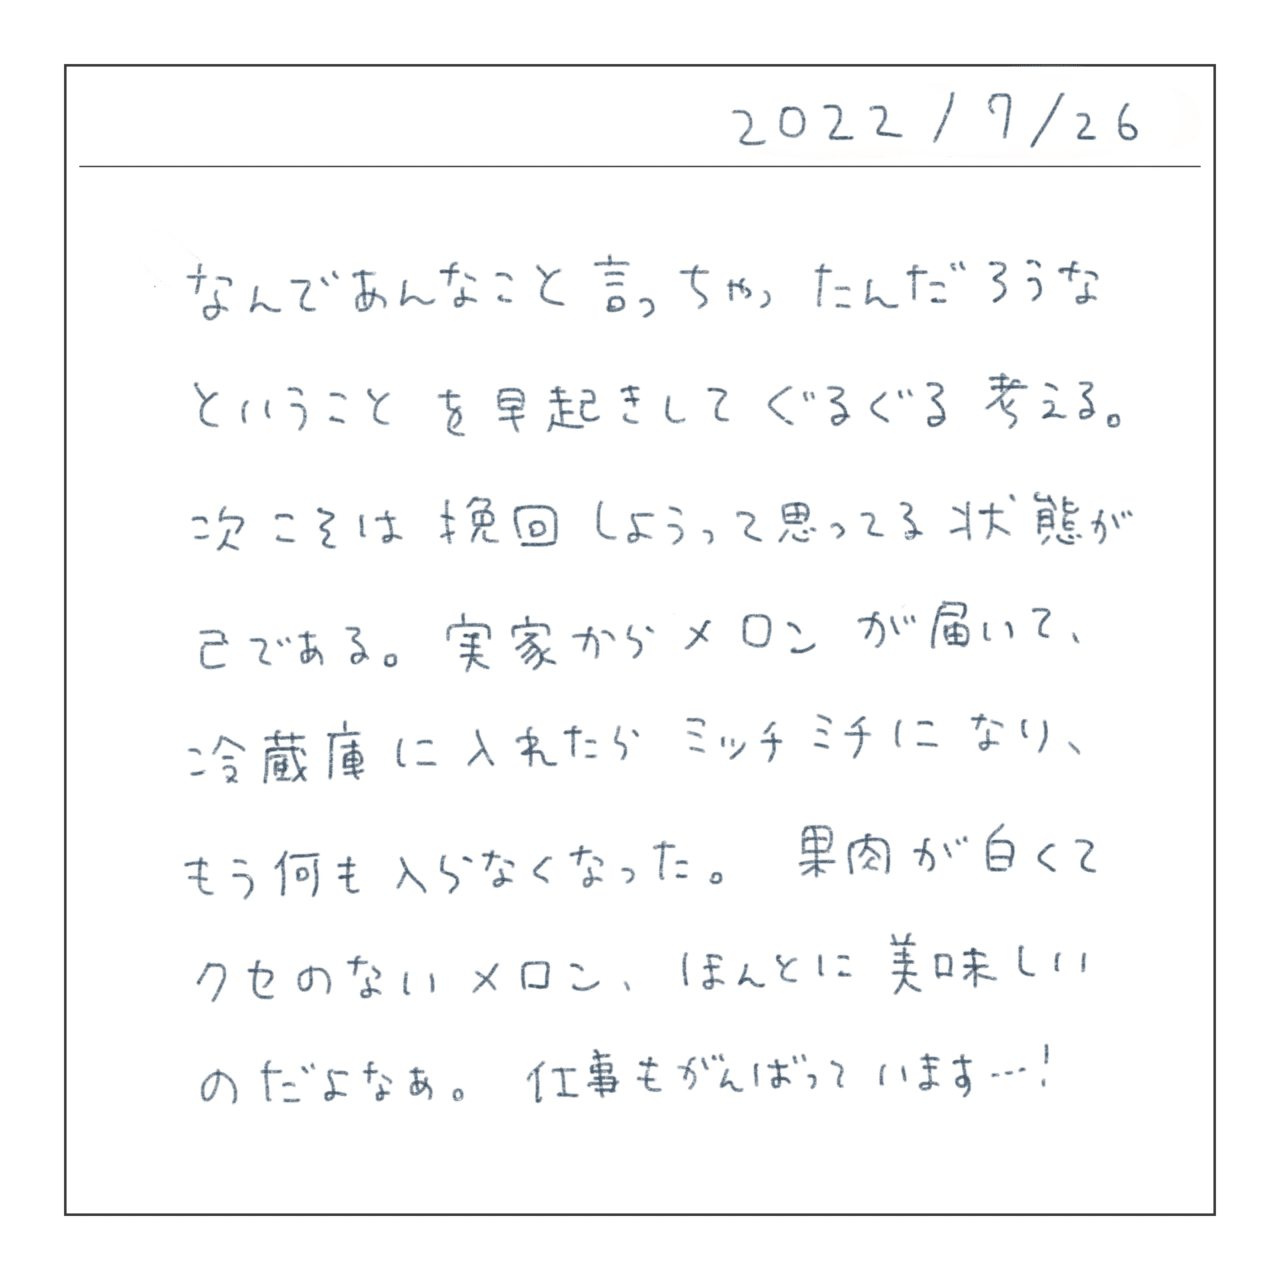 2022/7/26
なんであんなこと言っちゃったんだろうな
ということを早起きしてぐるぐる考える。
次こそは挽回しようって思ってる状態が
己である。実家からメロンが届いて、
冷蔵庫に入れたらミッチミチになり、
もう何も入らなくなった。果肉が白くて
クセのないメロン、ほんとに美味しい
のだよなぁ。仕事もがんばっています…!